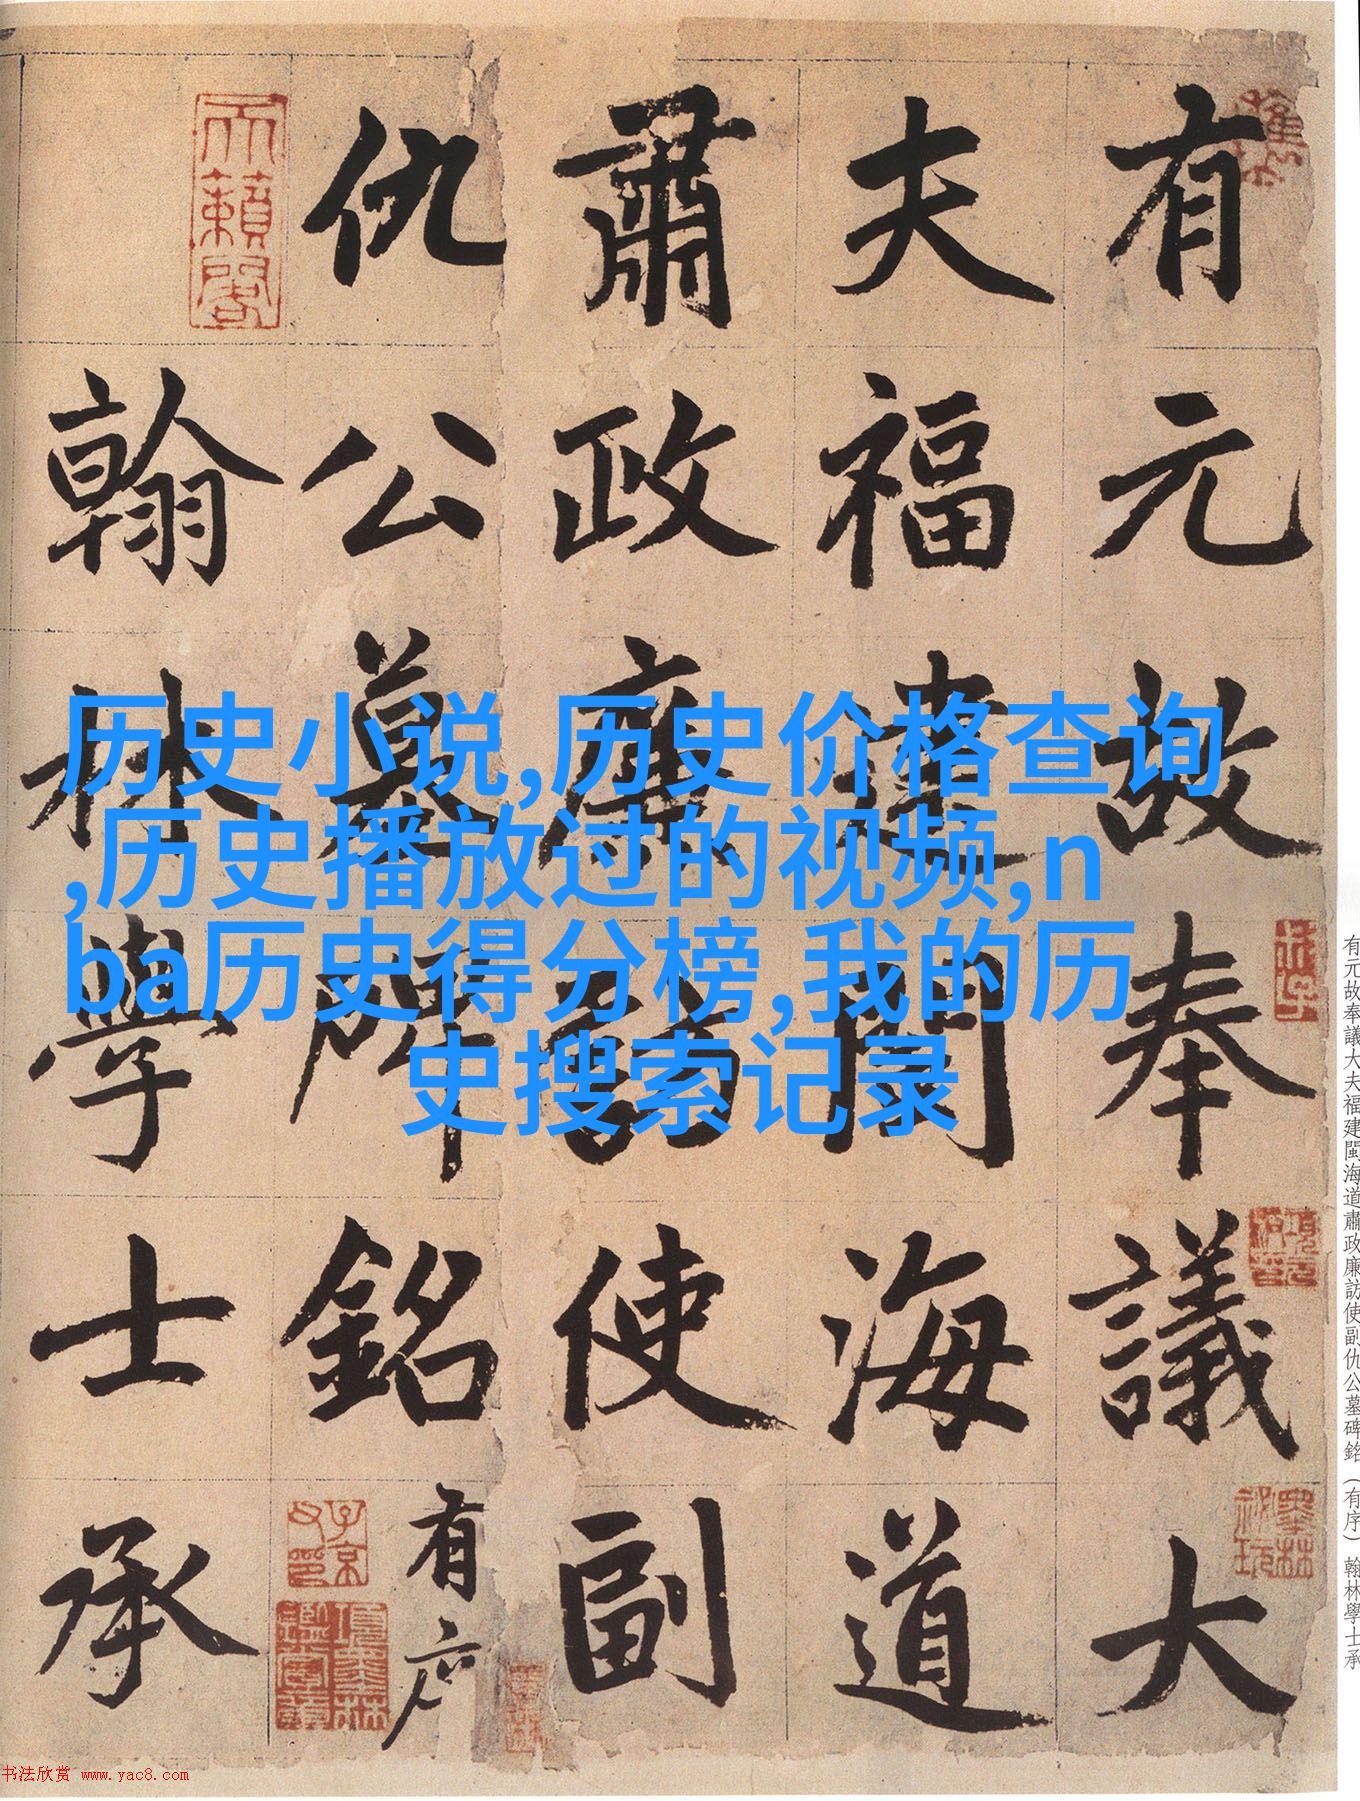 历史小说,历史价格查询
,历史播放过的视频,n
ba历史得分榜,我的历
史搜索记录
有元故奉議大
夫福建閩海道
肅政廉訪使副
仇公墓碑銘有序
翰林學士承
天籟閣
子京父印
項墨林鑑賞章
墨林秘玩
有元故奉議大夫福建閩海道肅政廉訪使副仇公墓碑銘（有序）翰林學士承
书法欣赏 www.yac8.com